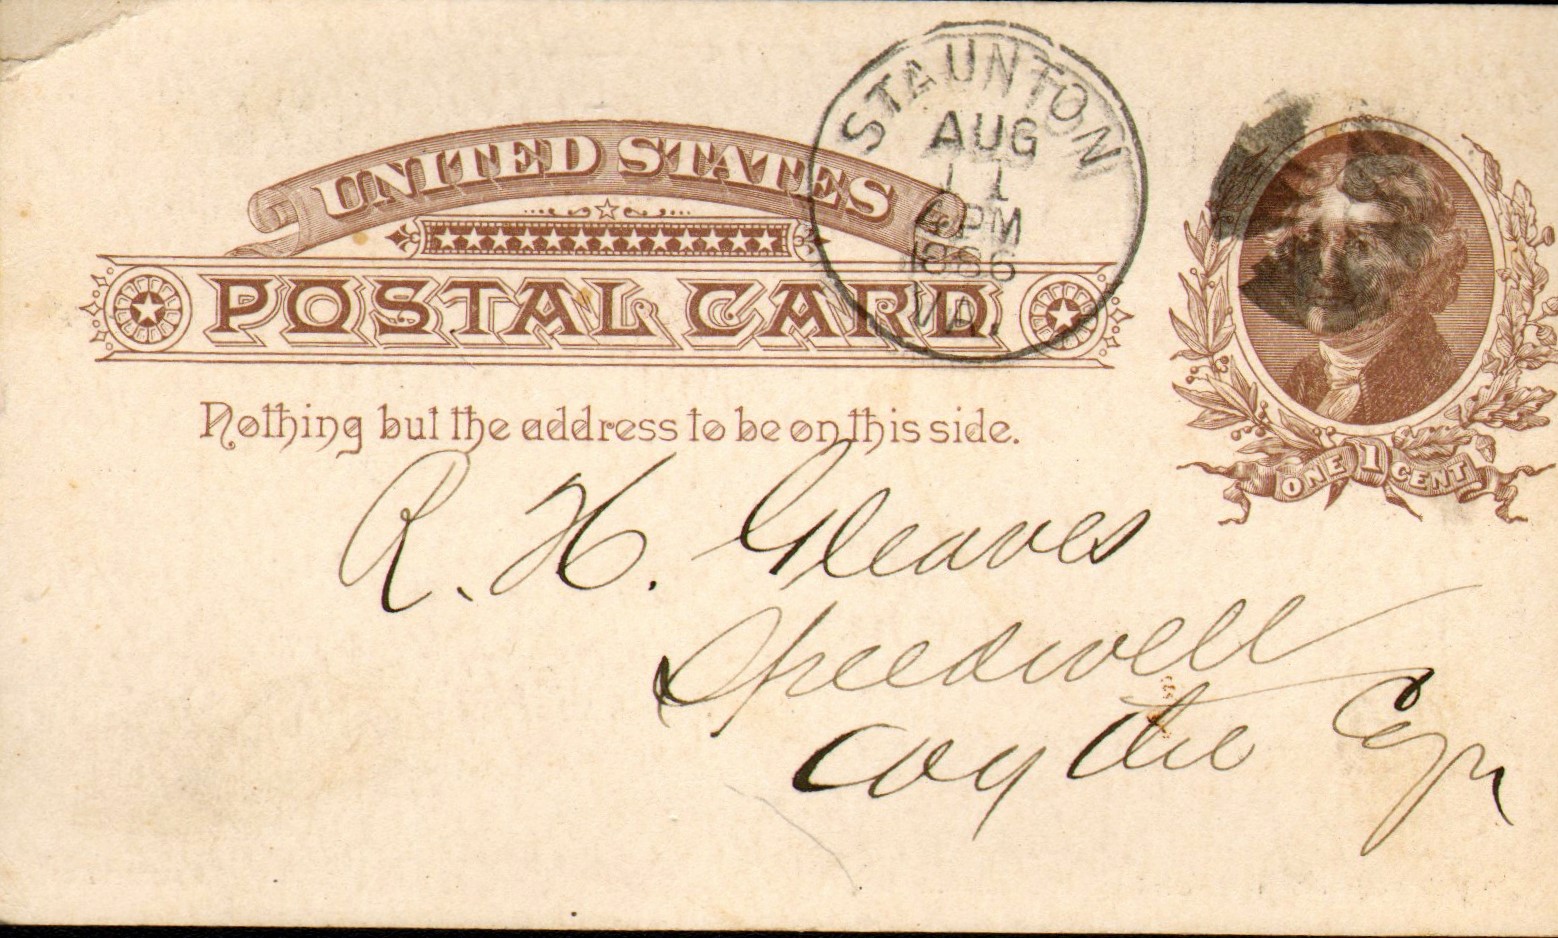 STAUNTON
AUG
11
4 PM
1886
VA.
UNITED STATES
POSTAL CARD
Nothing but the address to be on this side.
ONE 1 CENT
R. H. Gleaves
Speedwell
Wythe Co